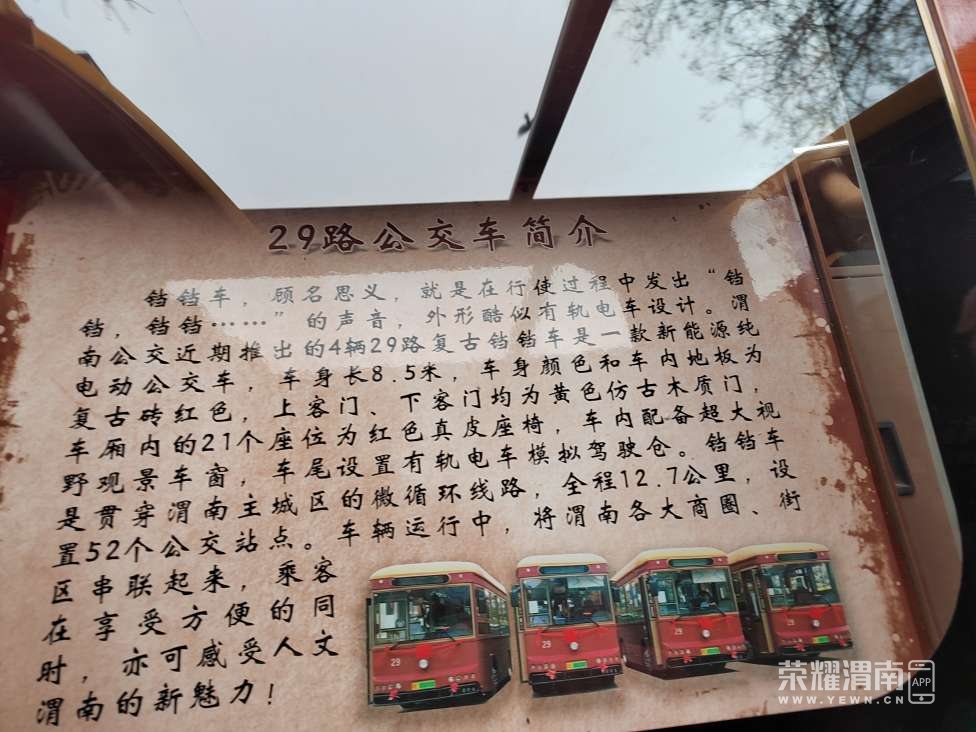 29路公交车简介
铛铛车，顾名思义，就是在行使过程中发出“铛
铛，铛铛……”的声音，外形酷似有轨电车设计。渭
南公交近期推出的4辆29路复古铛铛车是一款新能源纯
电动公交车，车身长8.5米，车身颜色和车内地板为
复古砖红色，上客门、下客门均为黄色仿古木质门，
车厢内的21个座位为红色真皮座椅，车内配备超大视
野观景车窗，车尾设置有轨电车模拟驾驶仓。铛铛车
是贯穿渭南主城区的微循环线路，全程12.7公里，设
置52个公交站点。车辆运行中，将渭南各大商圈、街
区串联起来，乘客
在享受方便的同
时，亦可感受人文
渭南的新魅力！
29
29
29
29
荣耀渭南
APP
WWW.YEWN.CN